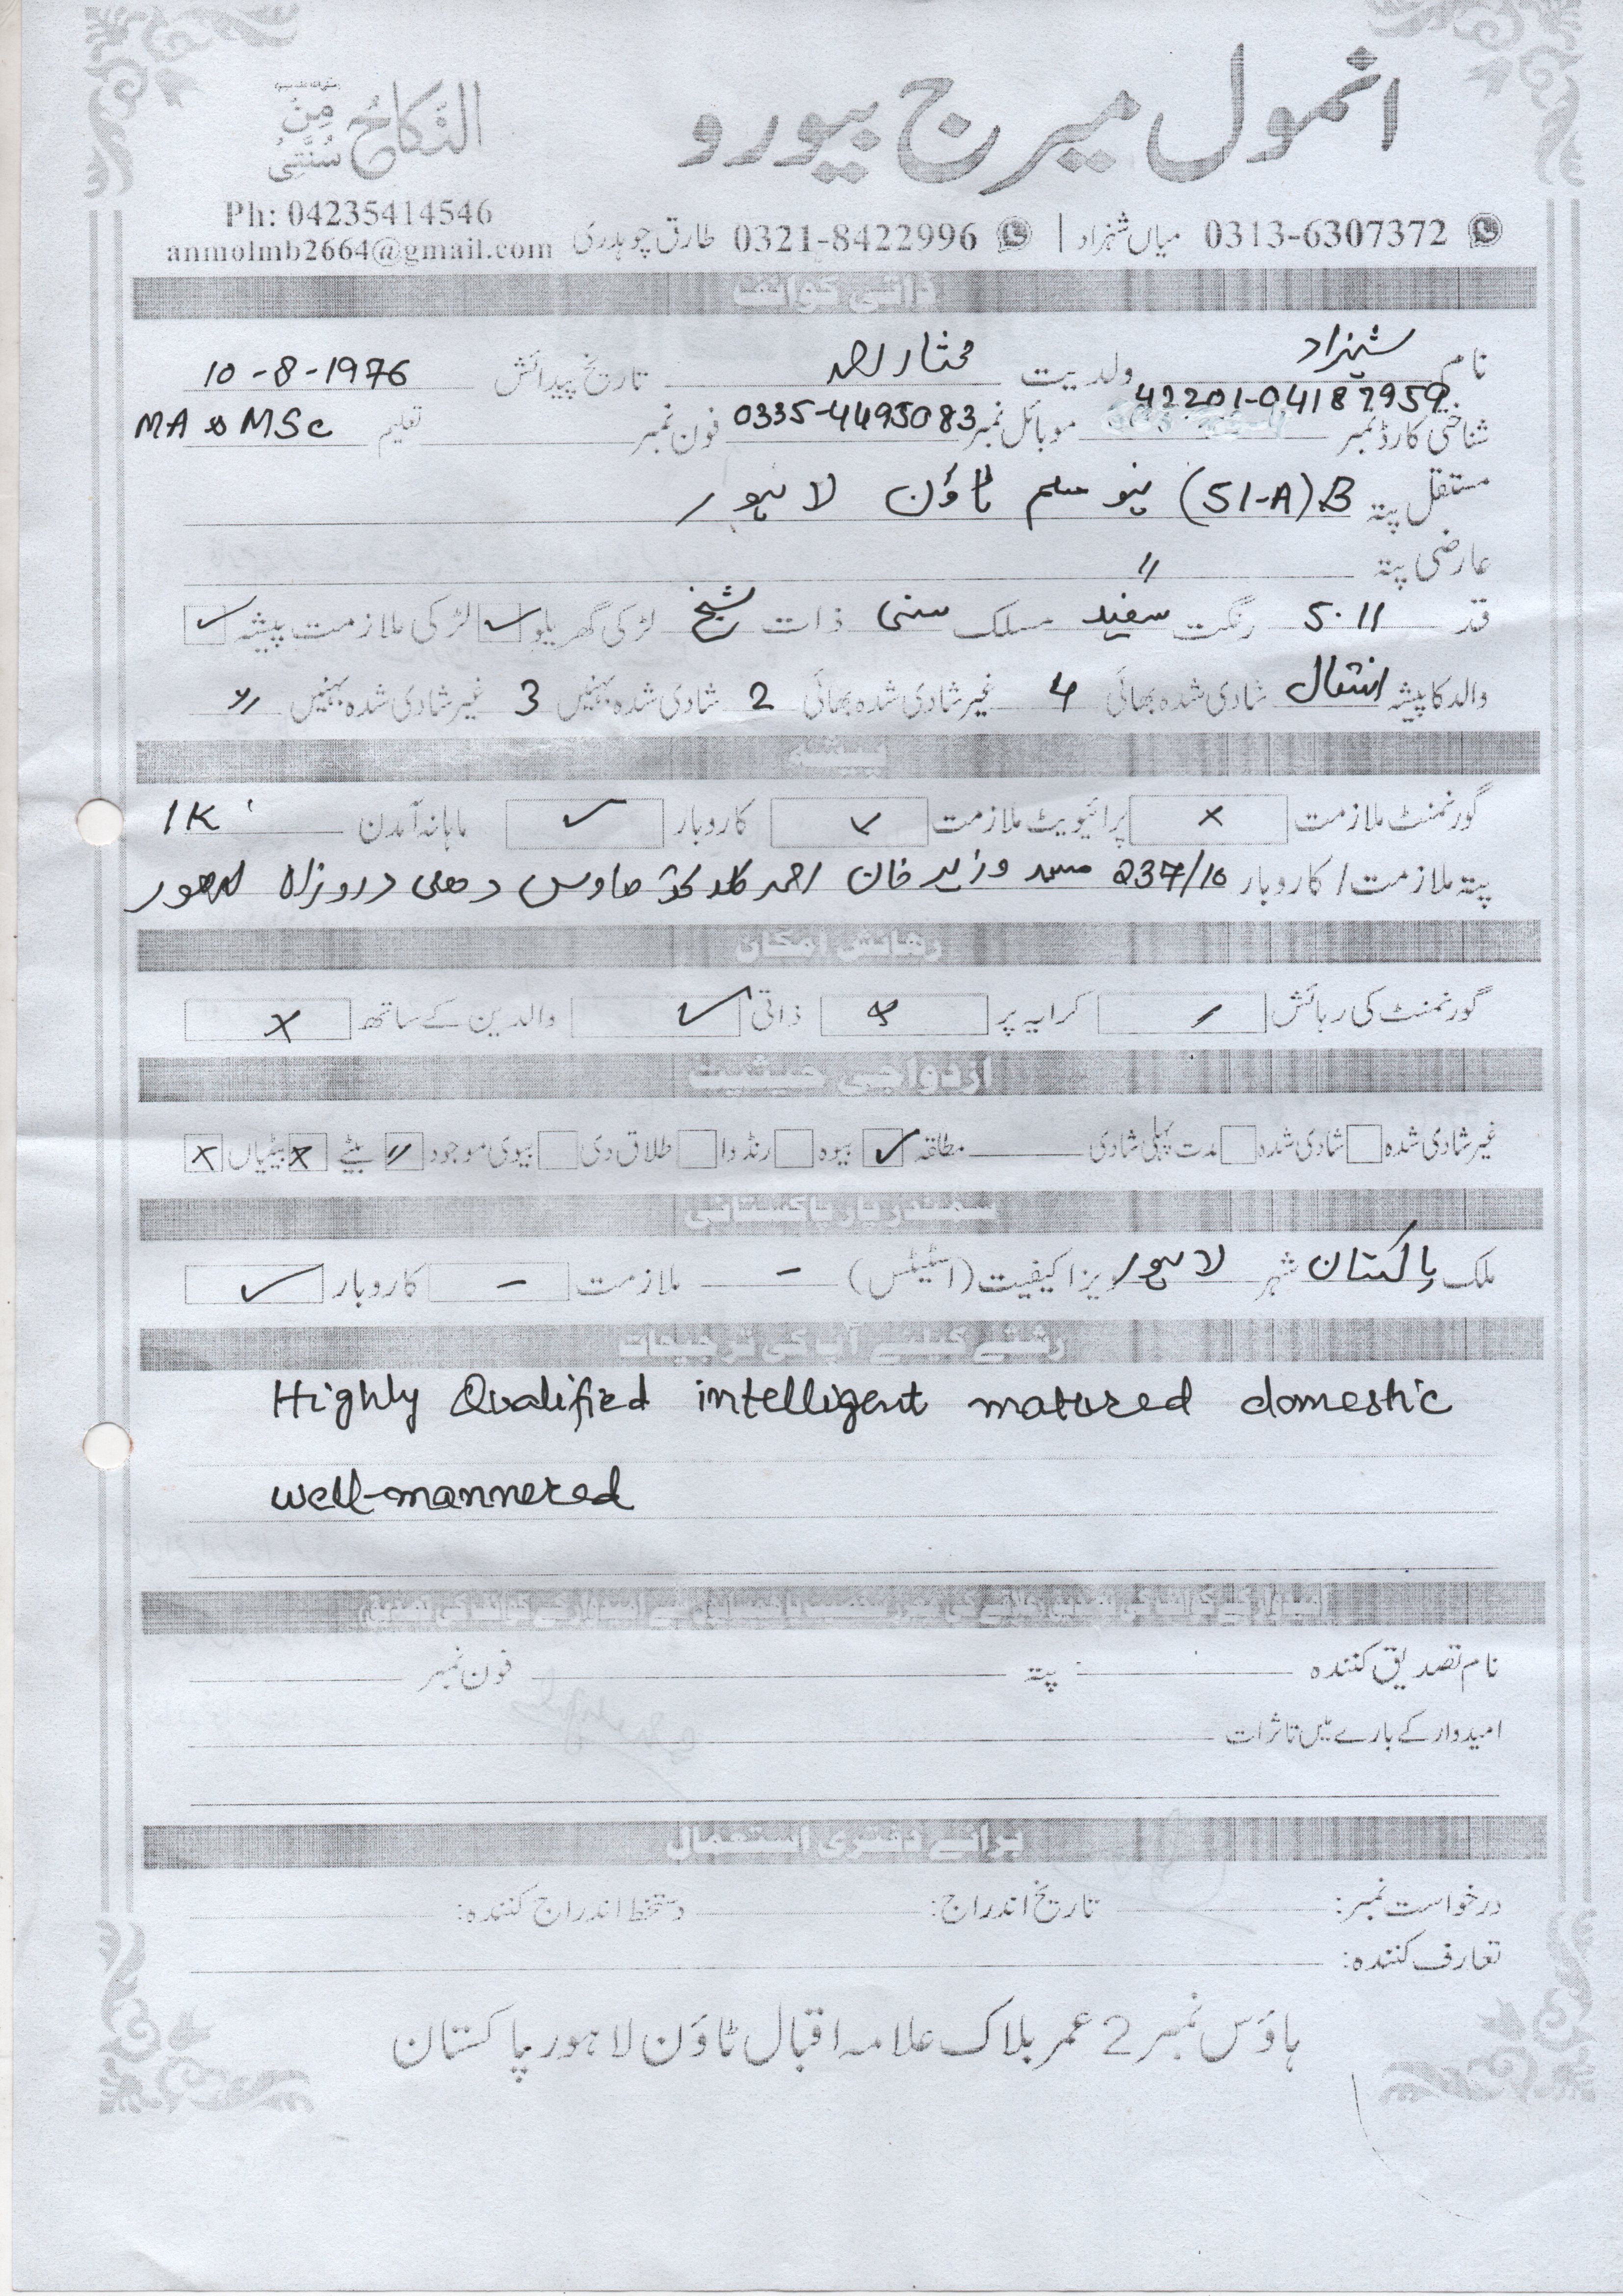 انمول میرج بیورو
النکاح من سنتی
Ph: 04235414546
anmolmb2664@gmail.com طارق چوہدری 0321-8422996 | میاں شہزاد 0313-6307372
ذاتی کوائف
نام شہزاد ولدیت مختار احمد تاریخ پیدائش 10-8-1976
شناختی کارڈ نمبر 42201-04187959 موبائل نمبر 0335-4495083 فون نمبر تعلیم MA & MSc
مستقل پتہ 51-A) B) نیو مسلم ٹاؤن لاہور
عارضی پتہ "
قد 5.11 رنگت سفید مسلک سنی ذات شیخ لڑکی گھریلو ✓ لڑکی ملازمت پیشہ ✓
والد کا پیشہ انتقال شادی شدہ بھائی 4 غیر شادی شدہ بھائی 2 شادی شدہ بہنیں 3 غیر شادی شدہ بہنیں "
پیشہ
گورنمنٹ ملازمت × پرائیویٹ ملازمت ✓ کاروبار ✓ ماہانہ آمدن 1K
پتہ ملازمت / کاروبار 237/10 مسجد وزیر خان احمد دہلی دروزاہ لاھور
رھائش امکان
گورنمنٹ کی رہائش کرایہ پر ذاتی ✓ والدین کے ساتھ ×
ازدواجی حیثیت
غیر شادی شدہ شادی شدہ مدت پہلی شادی مطلقہ ✓ بیوہ رنڈوا طلاق دی بیوی موجود " بیٹے × بیٹیاں ×
سمندر پار پاکستانی
ملک پاکستان شہر لاہور ویزا کیفیت (اسٹیٹس) - ملازمت - کاروبار ✓
رشتے کیلئے آپ کی ترجیحات
Highly Qualified intelligent matured domestic
well-mannered
نام تصدیق کنندہ پتہ فون نمبر
امیدوار کے بارے میں تاثرات
برائے دفتری استعمال
درخواست نمبر: تاریخ اندراج: دستخط اندراج کنندہ:
تعارف کنندہ:
ہاؤس نمبر 2 عمر بلاک علامہ اقبال ٹاؤن لاہور پاکستان